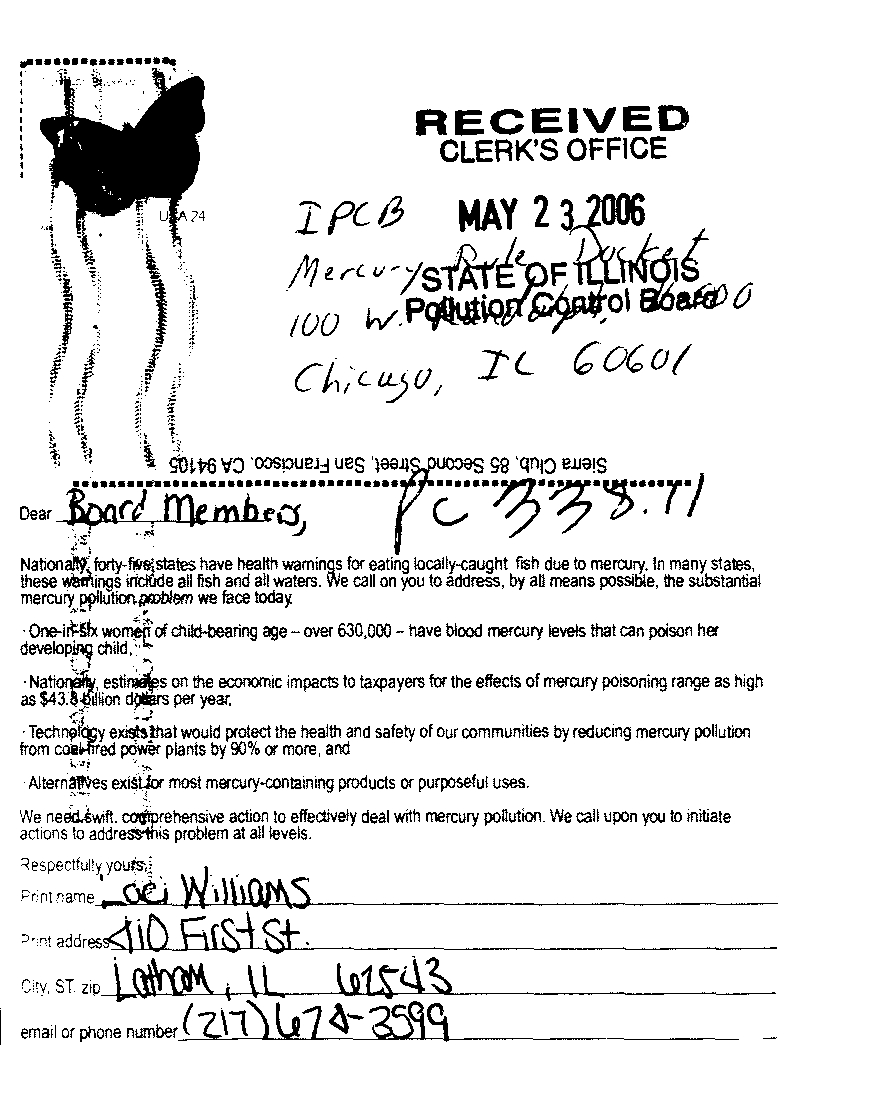 RECEIVED
CLERK'S OFFICE
MAY 23 2006
STATE OF ILLINOIS
Pollution Control Board
USA 24
IPCB
Mercury Rule Docket
100 W.
Chicago, IL 60601
Sierra Club, 85 Second Street, San Francisco, CA 94105
PC 338.11
Dear Board Members,
Nationally, forty-five states have health warnings for eating locally-caught fish due to mercury. In many states,
these warnings include all fish and all waters. We call on you to address, by all means possible, the substantial
mercury pollution problem we face today.
· One-in-six women of child-bearing age – over 630,000 – have blood mercury levels that can poison her
developing child,
· Nationally, estimates on the economic impacts to taxpayers for the effects of mercury poisoning range as high
as $43.8 billion dollars per year,
· Technology exists that would protect the health and safety of our communities by reducing mercury pollution
from coal-fired power plants by 90% or more, and
· Alternatives exist for most mercury-containing products or purposeful uses.
We need swift, comprehensive action to effectively deal with mercury pollution. We call upon you to initiate
actions to address this problem at all levels.
Respectfully yours,
Print name Williams
Print address 410 First St.
City, ST. zip Latham, IL 62543
email or phone number (217) 674-3599